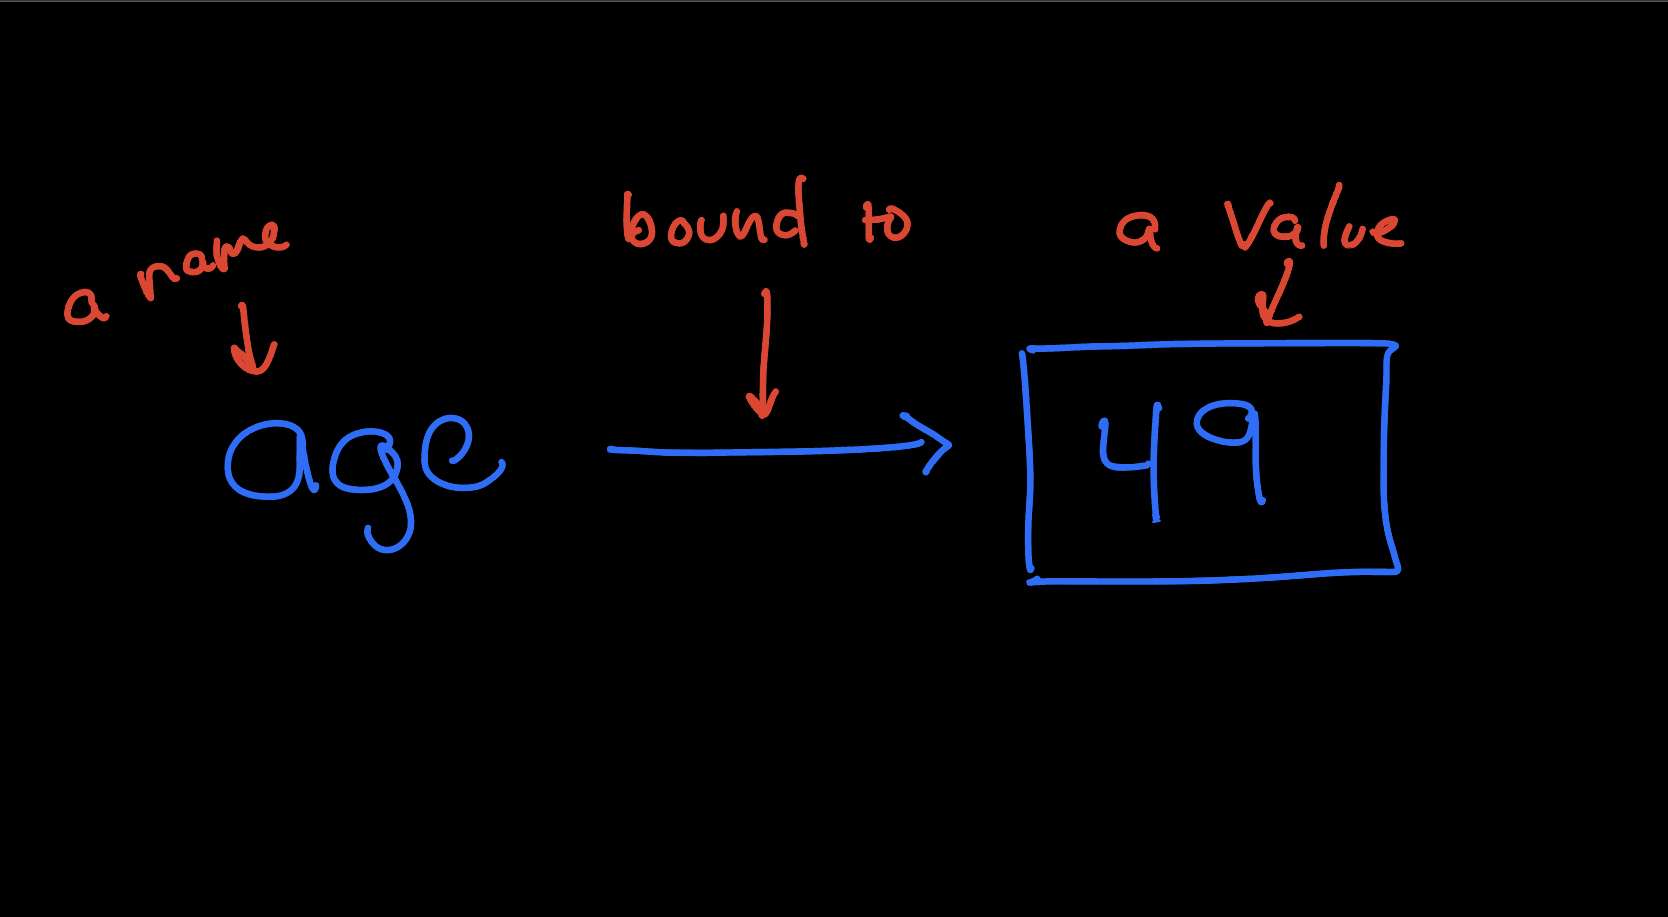 a name
bound to
a value
age
49